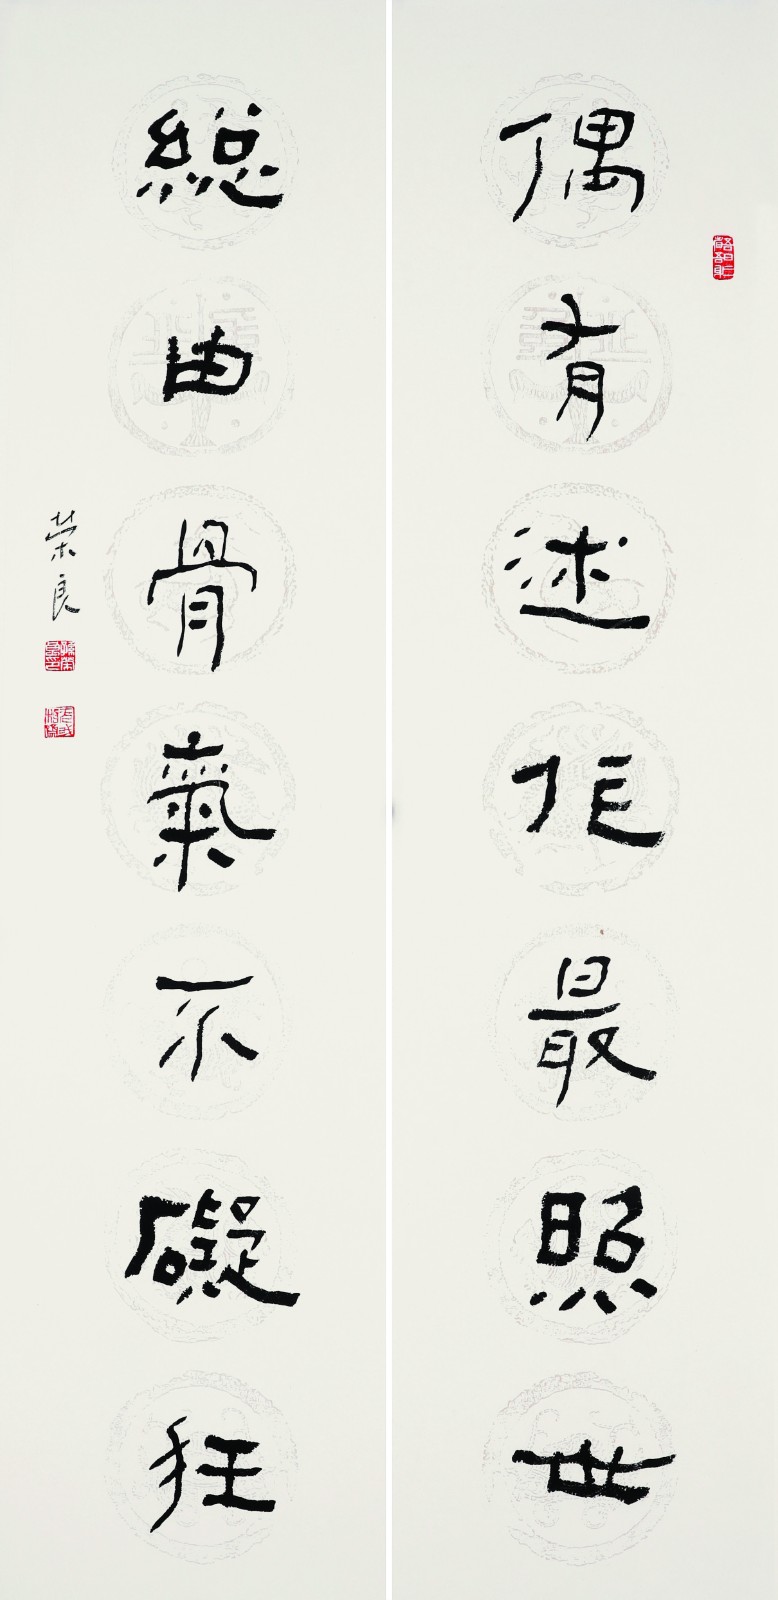 偶有述作最照世
總由骨氣不礙狂
榮良